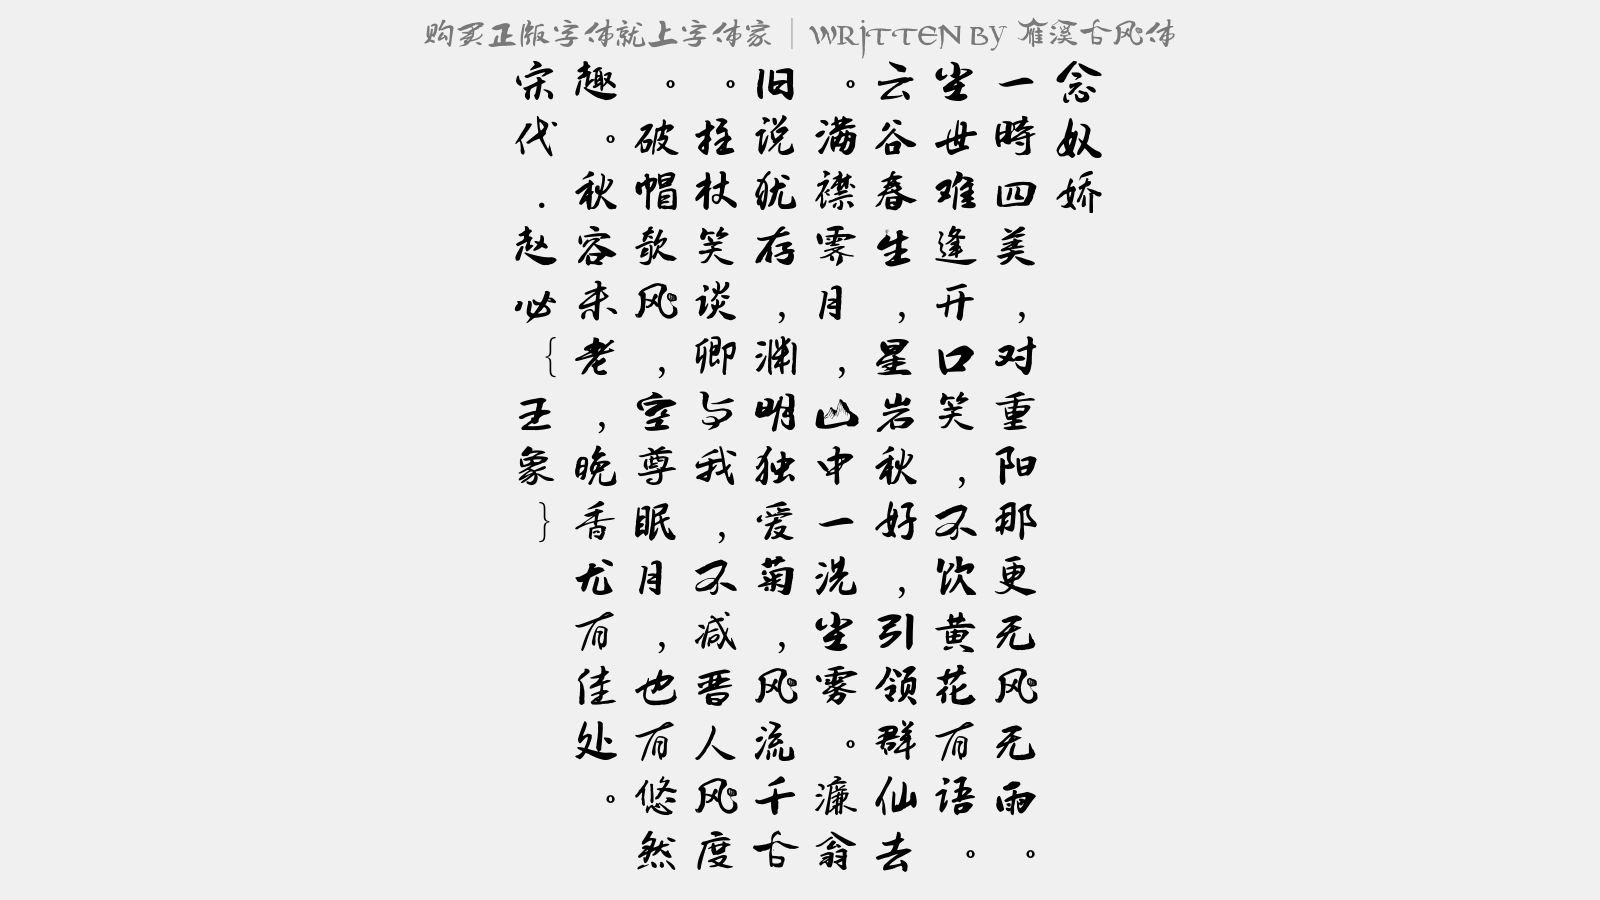 购买正版字体就上字体家｜WRITTEN BY 雁溪古风体
念奴娇
一時四美，对重阳那更无风无雨。
尘世难逢开口笑，不饮黄花有语。
云谷春生，星岩秋好，引领群仙去
。满襟霁月，山中一洗尘雾。濂翁
旧说犹存，渊明独爱菊，风流千古
。拄杖笑谈卿与我，不减晋人风度
。破帽欹风，空尊眠月，也有悠然
趣。秋容未老，晚香尤有佳处。
宋代.赵必{王象}